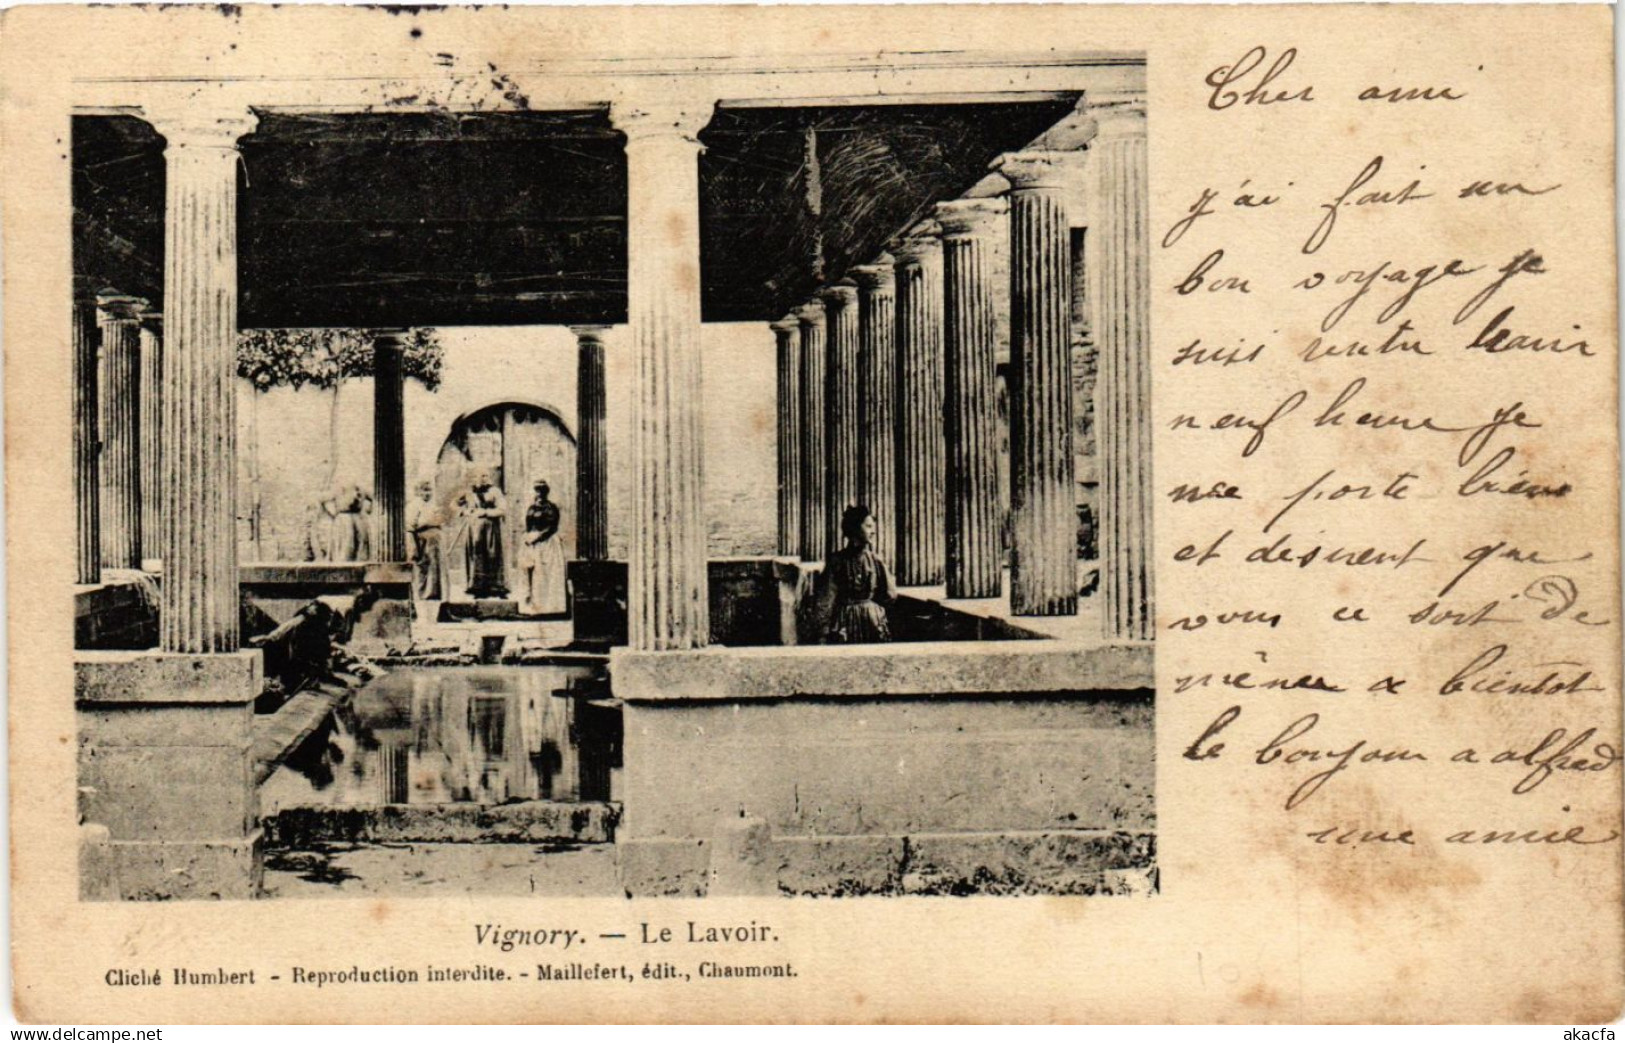 Cher ami
j'ai fait un
bon voyage je
suis rentu
neuf heure je
me porte bien
et desirent que
vous ce soit De
même a bientot
le bonjour a alfred
une amie
Vignory. — Le Lavoir.
Cliché Humbert - Reproduction interdite. - Maillefert, édit., Chaumont.
akacfa